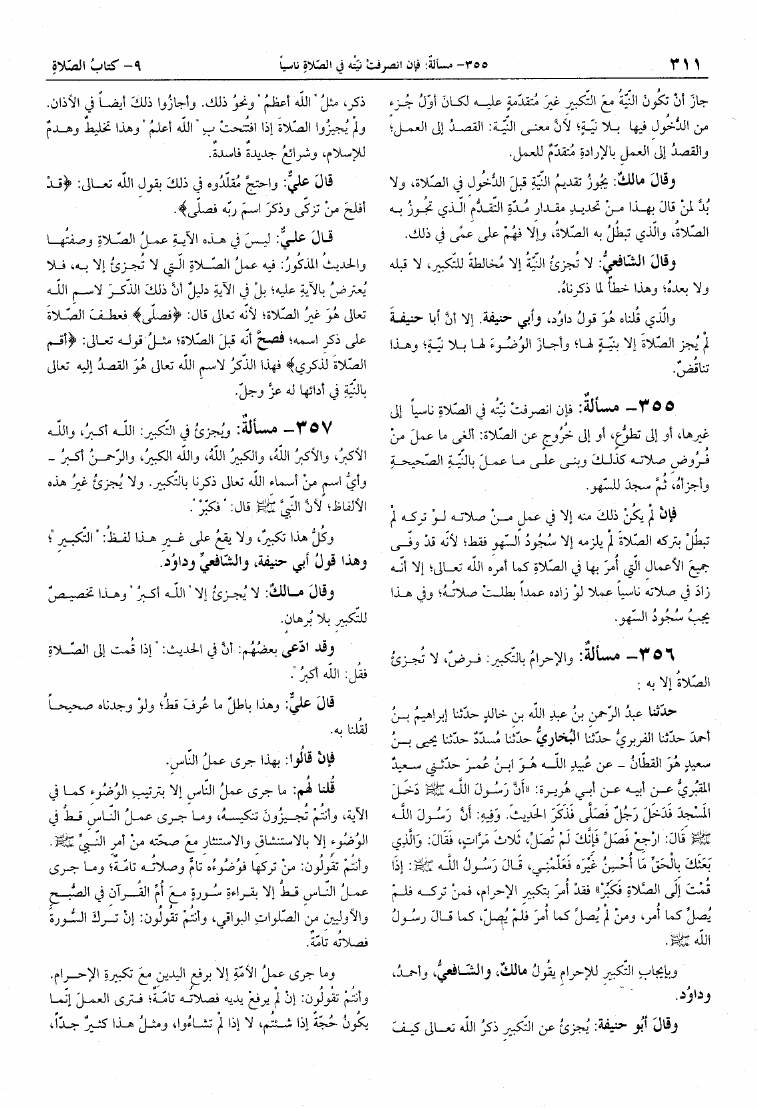 ٣١١
٣٥٥- مسألةٌ: فإن انصرفتْ نيّتُه في الصّلاةِ ناسياً
٩- كتابُ الصّلاةِ
جازَ أنْ تكونَ النّيّةُ معَ التّكبيرِ غيرَ مُتقدّمةٍ عليه لكانَ أوّلُ جُزءٍ
من الدُّخُولِ فيها بلا نيّةٍ؛ لأنَّ معنى النّيّة: القصدُ إلى العملِ؛
والقصدُ إلى العملِ بالإرادةِ مُتقدّمٌ للعملِ.
وقالَ مالكٌ: يجُوزُ تقديمُ النّيّةِ قبلَ الدُّخُولِ في الصّلاة، ولا
بُدَّ لمنْ قالَ بهذا منْ تحديدِ مقدارِ مُدّةِ التّقدُّمِ الّذي تجُوزُ به
الصّلاةُ، والّذي تبطُلُ به الصّلاةُ، وإلا فهُمْ على عمًى في ذلك.
وقالَ الشّافعيُّ: لا تُجزئُ النّيّةُ إلا مُخالطةً للتّكبير، لا قبله
ولا بعده؛ وهذا خطأٌ لما ذكرناهُ.
والّذي قُلناه هُوَ قولُ داوُد، وأبي حنيفة. إلا أنَّ أبا حنيفةَ
لمْ يُجز الصّلاةَ إلا بنيّةٍ لها؛ وأجازَ الوُضُوءَ لها بلا نيّةٍ؛ وهذا
تناقُضٌ.
٣٥٥- مسألةٌ: فإن انصرفتْ نيّتُه في الصّلاةِ ناسياً إلى
غيرها، أو إلى تطوُّعٍ، أو إلى خُرُوجٍ عن الصّلاة: ألغى ما عملَ منْ
فُرُوضِ صلاته كذلكَ وبنى على ما عملَ بالنّيّةِ الصّحيحةِ
وأجزأهُ، ثُمَّ سجدَ للسّهو.
فإنْ لمْ يكُنْ ذلكَ منه إلا في عملٍ منْ صلاته لوْ تركه لمْ
تبطُلْ بتركه الصّلاةُ لمْ يلزمه إلا سُجُودُ السّهوِ فقط؛ لأنّه قدْ وفّى
جميعَ الأعمالِ الّتي أُمرَ بها في الصّلاةِ كما أمره الله تعالى؛ إلا أنّه
زادَ في صلاته ناسياً عملا لوْ زاده عمداً بطلتْ صلاتُهُ؛ وفي هذا
يجبُ سُجُودُ السّهو.
٣٥٦- مسألةٌ: والإحرامُ بالتّكبيرِ: فرضٌ، لا تُجزئُ
الصّلاةُ إلا به :
حدّثنا عبدُ الرّحمنِ بنُ عبدِ الله بنِ خالدٍ حدّثنا إبراهيمُ بنُ
أحمدَ حدّثنا الفربريُّ حدّثنا البُخاريُّ حدّثنا مُسدّدٌ حدّثنا يحيى بنُ
سعيدٍ هوَ القطّانُ - عن عُبيدِ الله هُوَ ابنُ عُمرَ حدّثني سعيدٌ
المقبُريُّ عنْ أبيه عنْ أبي هُريرة: «أنَّ رَسُولَ الله ﷺ دَخَلَ
المَسْجِدَ فَدَخَلَ رَجُلٌ فَصَلَّى فَذَكَرَ الحَدِيثَ. وَفِيهِ: أَنَّ رَسُولَ الله
ﷺ قَالَ: ارْجِعْ فَصَلِّ فَإِنَّكَ لَمْ تُصَلِّ، ثَلاثَ مَرَّاتٍ، فَقَالَ: وَالَّذِي
بَعَثَكَ بِالْحَقِّ مَا أُحْسِنُ غَيْرَه فَعَلِّمْنِي، قَالَ رَسُولُ الله ﷺ: إِذَا
قُمْتَ إِلَى الصَّلاةِ فَكَبِّرْ» فقدْ أُمرَ بتكبيرِ الإحرام، فمنْ تركه فلمْ
يُصلِّ كما أُمر، ومنْ لمْ يُصلِّ كما أُمرَ فلمْ يُصلِّ، كما قالَ رسُولُ
الله ﷺ.
وبإيجابِ التّكبيرِ للإحرامِ يقُولُ مالكٌ، والشّافعيُّ، وأحمدُ،
وداوُد.
وقالَ أبُو حنيفة: يُجزئُ عن التّكبيرِ ذكرُ الله تعالى كيفَ
ذكر، مثلُ "الله أعظمُ" ونحوُ ذلك. وأجازُوا ذلكَ أيضاً في الأذان.
ولمْ يُجيزُوا الصّلاةَ إذا افتُتحتْ بـ "الله أعلمُ" وهذا تخليطٌ وهدمٌ
للإسلام، وشرائعُ جديدةٌ فاسدةٌ.
قالَ عليٌّ: واحتجَّ مُقلّدُوه في ذلكَ بقولِ الله تعالى: ﴿قدْ
أفلحَ منْ تزكّى وذكرَ اسمَ ربّه فصلّى﴾.
قالَ عليٌّ: ليسَ في هذه الآيةِ عملُ الصّلاةِ وصفتُها
والحديثُ المذكُورُ: فيه عملُ الصّلاةِ الّتي لا تُجزئُ إلا به، فلا
يُعترضُ بالآيةِ عليه؛ بلْ في الآيةِ دليلٌ أنَّ ذلكَ الذّكرَ لاسمِ الله
تعالى هُوَ غيرُ الصّلاة؛ لأنّه تعالى قال: ﴿فصلّى﴾ فعطفَ الصّلاةَ
على ذكرِ اسمه؛ فصحَّ أنه قبلَ الصّلاة؛ مثلُ قوله تعالى: ﴿أقم
الصّلاةَ لذكري﴾ فهذا الذّكرُ لاسمِ الله تعالى هُوَ القصدُ إليه تعالى
بالنّيّةِ في أدائها له عزَّ وجلَّ.
٣٥٧- مسألةٌ: ويُجزئُ في التّكبيرِ: الله أكبرُ، والله
الأكبرُ، والأكبرُ اللهُ، والكبيرُ اللهُ، والله الكبيرُ، والرّحمنُ أكبرُ -
وأيُّ اسمٍ منْ أسماء الله تعالى ذكرنا بالتّكبير. ولا يُجزئُ غيرُ هذه
الألفاظ؛ لأنَّ النّبيَّ ﷺ قال: "فكبّرْ".
وكُلُّ هذا تكبيرٌ، ولا يقعُ على غيرِ هذا لفظُ: "التّكبيرِ"؛
وهذا قولُ أبي حنيفة، والشّافعيِّ وداوُد.
وقالَ مالكٌ: لا يُجزئُ إلا "الله أكبرُ" وهذا تخصيصٌ
للتّكبيرِ بلا بُرهانٍ.
وقد ادّعى بعضُهُم: أنَّ في الحديث: "إذا قُمت إلى الصّلاةِ
فقُل: الله أكبرُ".
قالَ عليٌّ: وهذا باطلٌ ما عُرفَ قطُّ؛ ولوْ وجدناه صحيحاً
لقُلنا به.
فإنْ قالُوا: بهذا جرى عملُ النّاسِ.
قُلنا لهُم: ما جرى عملُ النّاسِ إلا بترتيبِ الوُضُوء كما في
الآية، وأنتُمْ تُجيزُونَ تنكيسهُ، وما جرى عملُ النّاسِ قطُّ في
الوُضُوء إلا بالاستنشاقِ والاستنثارِ معَ صحّته منْ أمرِ النّبيِّ ﷺ.
وأنتُمْ تقُولُون: منْ تركها فوُضُوءُه تامٌّ وصلاتُه تامّةٌ؛ وما جرى
عملُ النّاسِ قطُّ إلا بقراءةِ سُورةٍ معَ أُمِّ القُرآنِ في الصُّبحِ
والأوليينِ من الصّلواتِ البواقي، وأنتُمْ تقُولُون: إنْ تركَ السُّورةَ
فصلاتُه تامّةٌ.
وما جرى عملُ الأمّةِ إلا برفعِ اليدينِ معَ تكبيرةِ الإحرامِ.
وأنتُمْ تقُولُون: إنْ لمْ يرفعْ يديه فصلاتُه تامّةٌ؛ فترى العملَ إنّما
يكُونُ حُجّةً إذا شئتُم، لا إذا لمْ تشاءُوا، ومثلُ هذا كثيرٌ جدّاً،